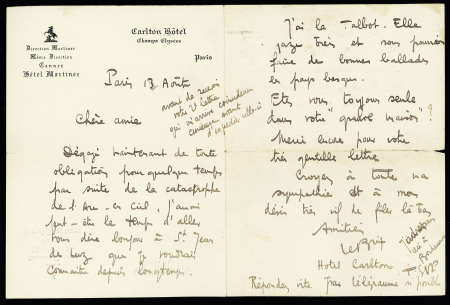 Carlton Hôtel
Champs Elysées
Paris
Direction Martinez
Même Direction
Cannes
Hôtel Martinez
Paris 13 Août
avant de
votre 2e lettre
qui
Chère amie
Dégagé maintenant de toute
obligation pour quelque temps
par suite de la catastrophe
de l'Arc-en-ciel, j'aurai
peut-être le temps d'aller
vous dire bonjour à St Jean
de Luz que je voudrais
connaître depuis longtemps.
J'ai la Talbot. Elle
gaze très et nous pourrions
faire de bonnes ballades
en pays basque.
Etes vous toujours seule
dans votre "grande maison"?
Merci Lucke pour votre
très gentille lettre
Croyez à toute ma
sympathie et à mon
désir très vif de filer là-bas
Amitiés
Le Brix
Hotel Carlton
Répondez vite par télégramme si possible